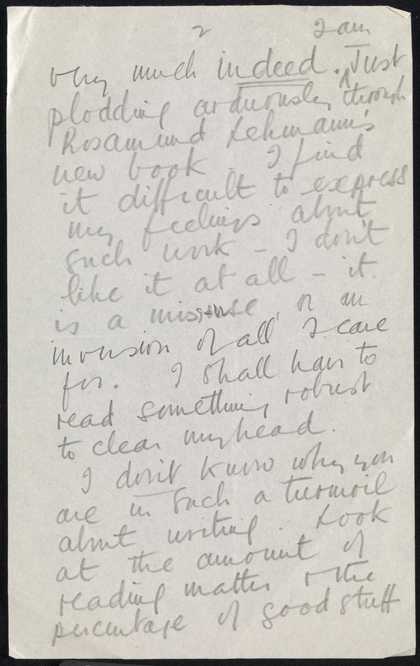 2
I am
very much indeed. Just
plodding arduously through
Rosamund Lehmann's
new book I find
it difficult to express
my feelings about
such work - I don't
like it at all - it
is a misuse or an
inversion of all I care
for. I shall have to
read something robust
to clear my head.
I don't know why you
are in such a turmoil
about writing. Look
at the amount of
reading matter & the
percentage of good stuff